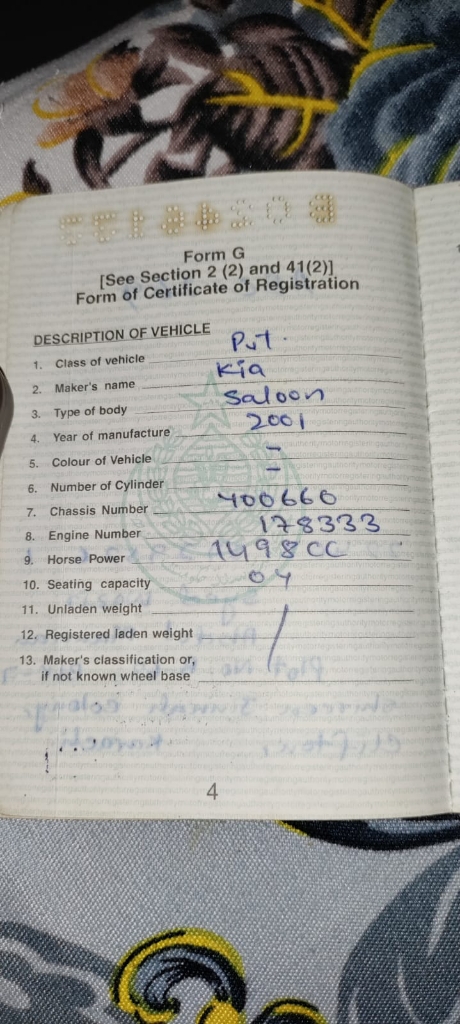 Form G
[See Section 2 (2) and 41(2)]
Form of Certificate of Registration
DESCRIPTION OF VEHICLE
1. Class of vehicle Pvt.
2. Maker's name Kia
3. Type of body Saloon
4. Year of manufacture 2001
5. Colour of Vehicle -
6. Number of Cylinder -
7. Chassis Number 400660
8. Engine Number 178333
9. Horse Power 1498CC
10. Seating capacity 04
11. Unladen weight
12. Registered laden weight
13. Maker's classification or,
if not known wheel base
4